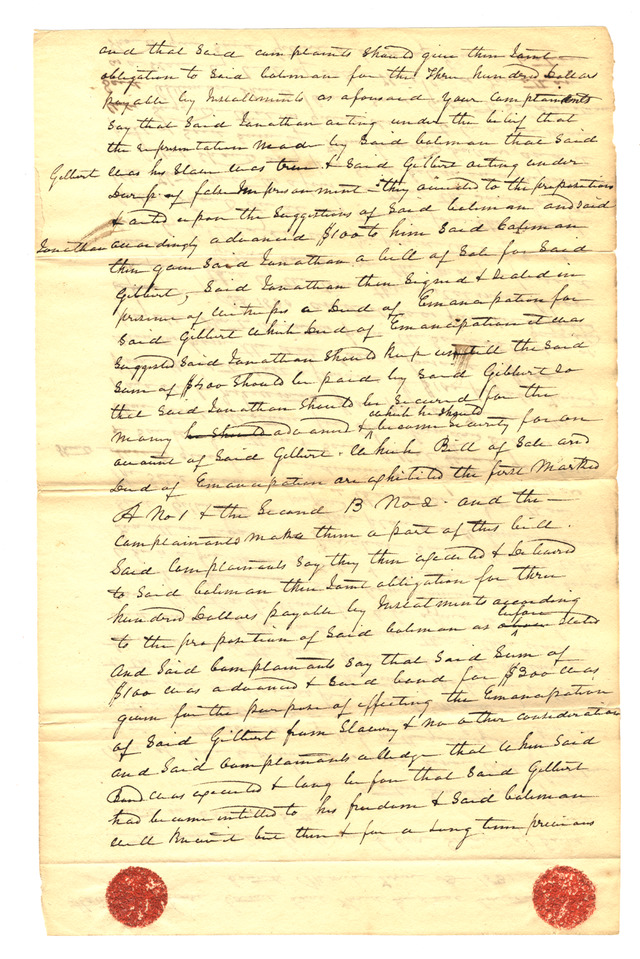 and that said complaints should give their Joint
obligation to said Coleman for the Three hundred Dollars
payable by Installments as aforesaid your Complainants
say that said Jonathan acting under the belief that
the representation made by said Coleman that said
Gilbert was his slave was true & said Gilbert acting under
Duress of false Imprisonment they acceded to the proposition
& acted upon the suggestions of said Coleman and said
Jonathan accordingly advanced $100 to him said Coleman
then gave said Jonathan a bill of Sale for said
Gilbert, said Jonathan then signed & sealed in
presence of witness a Deed of Emancipation for
said Gilbert which Deed of Emancipation it was
suggested said Jonathan should keep untill the said
sum of $400 should be paid by said Gilbert so
that said Jonathan should be secured for the
which he should
money he should advanced & become security for on
account of said Gilbert. Which Bill of Sale and
Deed of Emancipation are exhibited the first Marked
A No 1 & the Second B No 2. and the
complainants make them a part of this bill.
Said Complainants say they then executed & delivered
to said Coleman their Joint obligation for three
hundred Dollars payable by Installments according
before
to the proposition of said Coleman as above stated
And said Complainants say that said sum of
$100 was advanced & said bond for $300 was
given for the purpose of effecting the Emancipation
of said Gilbert from Slavery & no other consideration
and said Complainants alledge that when said
Bond was executed & long before that said Gilbert
had become intitled to his freedom & said Coleman
well knew it but then & for a long time previous